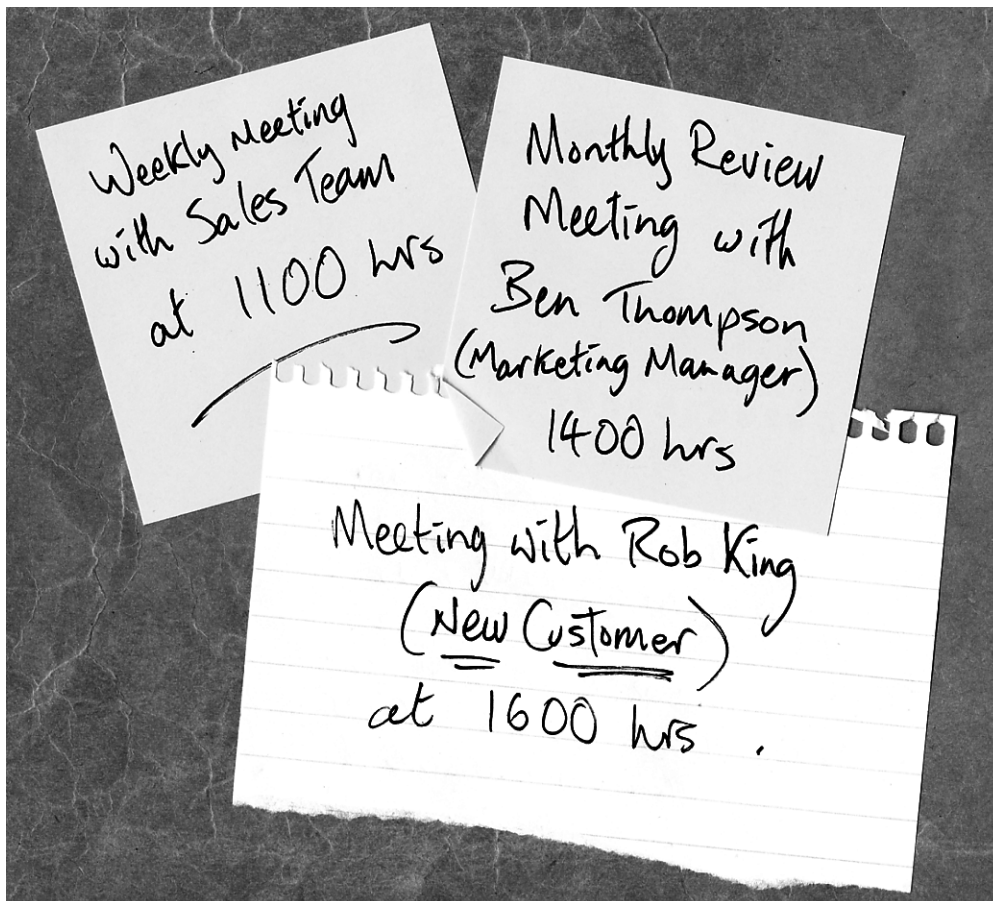 Weekly Meeting
with Sales Team
at 1100 hrs
Monthly Review
Meeting with
Ben Thompson
(Marketing Manager)
1400 hrs
Meeting with Rob King
(New Customer)
at 1600 hrs .